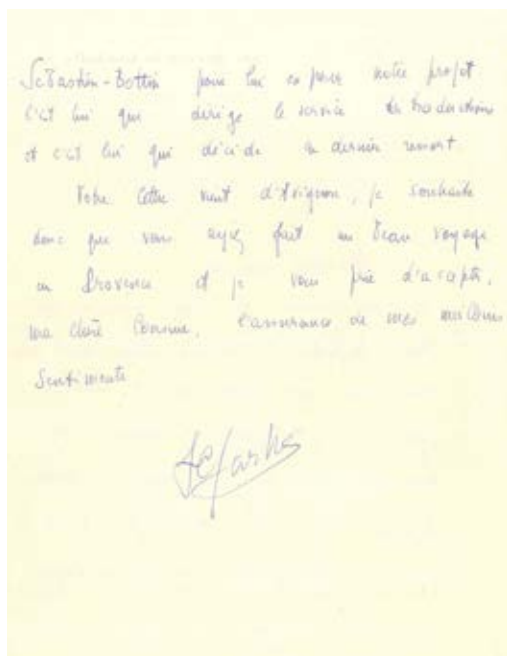 Sébastien-Bottin pour lui exposer notre projet
C'est lui qui dirige le service des traductions
et c'est lui qui décide en dernier ressort
Votre lettre vient d'Avignon, je souhaite
donc que vous ayez fait un beau voyage
en Provence et je vous prie d'accepter,
ma chère Consœur, l'assurance de mes meilleurs
Sentiments